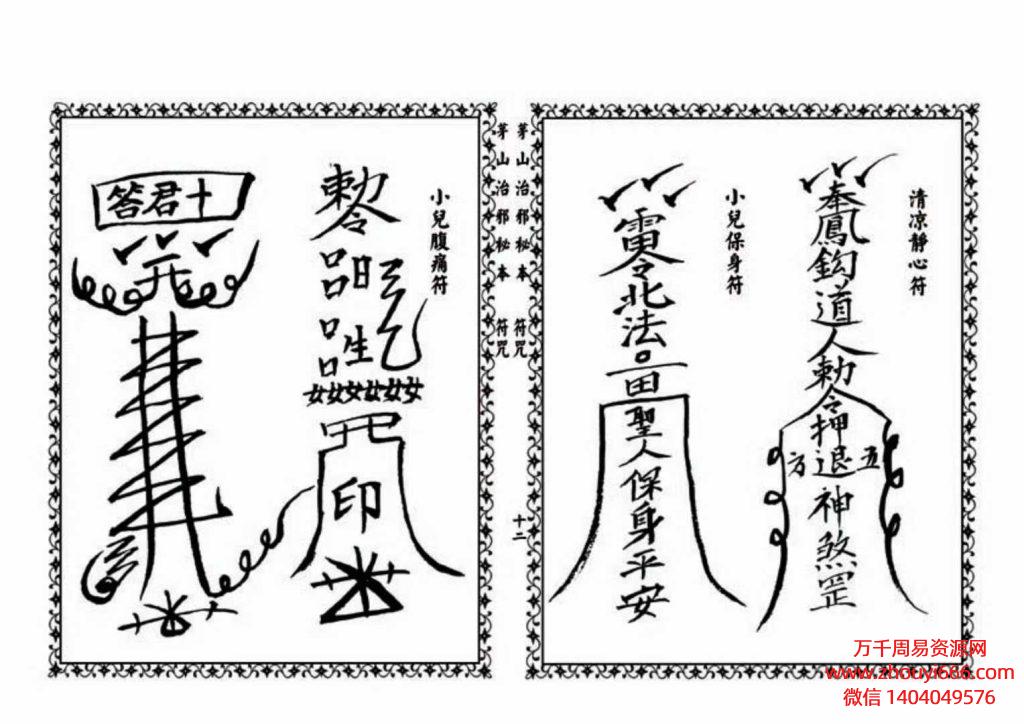 清凉靜心符
奉鳳鈎道人勅令押退神煞罡
五方
小兒保身符
雷令北法
聖人保身平安
茅山治邪秘本 符咒
十二
茅山治邪秘本 符咒
小兒腹痛符
勅令
品
品
女女女女女女
印
十君答
万千周易资源网
www.zhouyi686.com
微信 1404049576